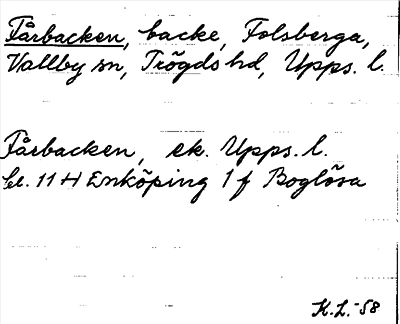 Fårbacken, backe, Folsberga,
Vallby sn, Trögds hd, Upps. l.
Fårbacken, ek. Upps. l.
bl. 11 H Enköping 1 f Boglösa
K.L. -58